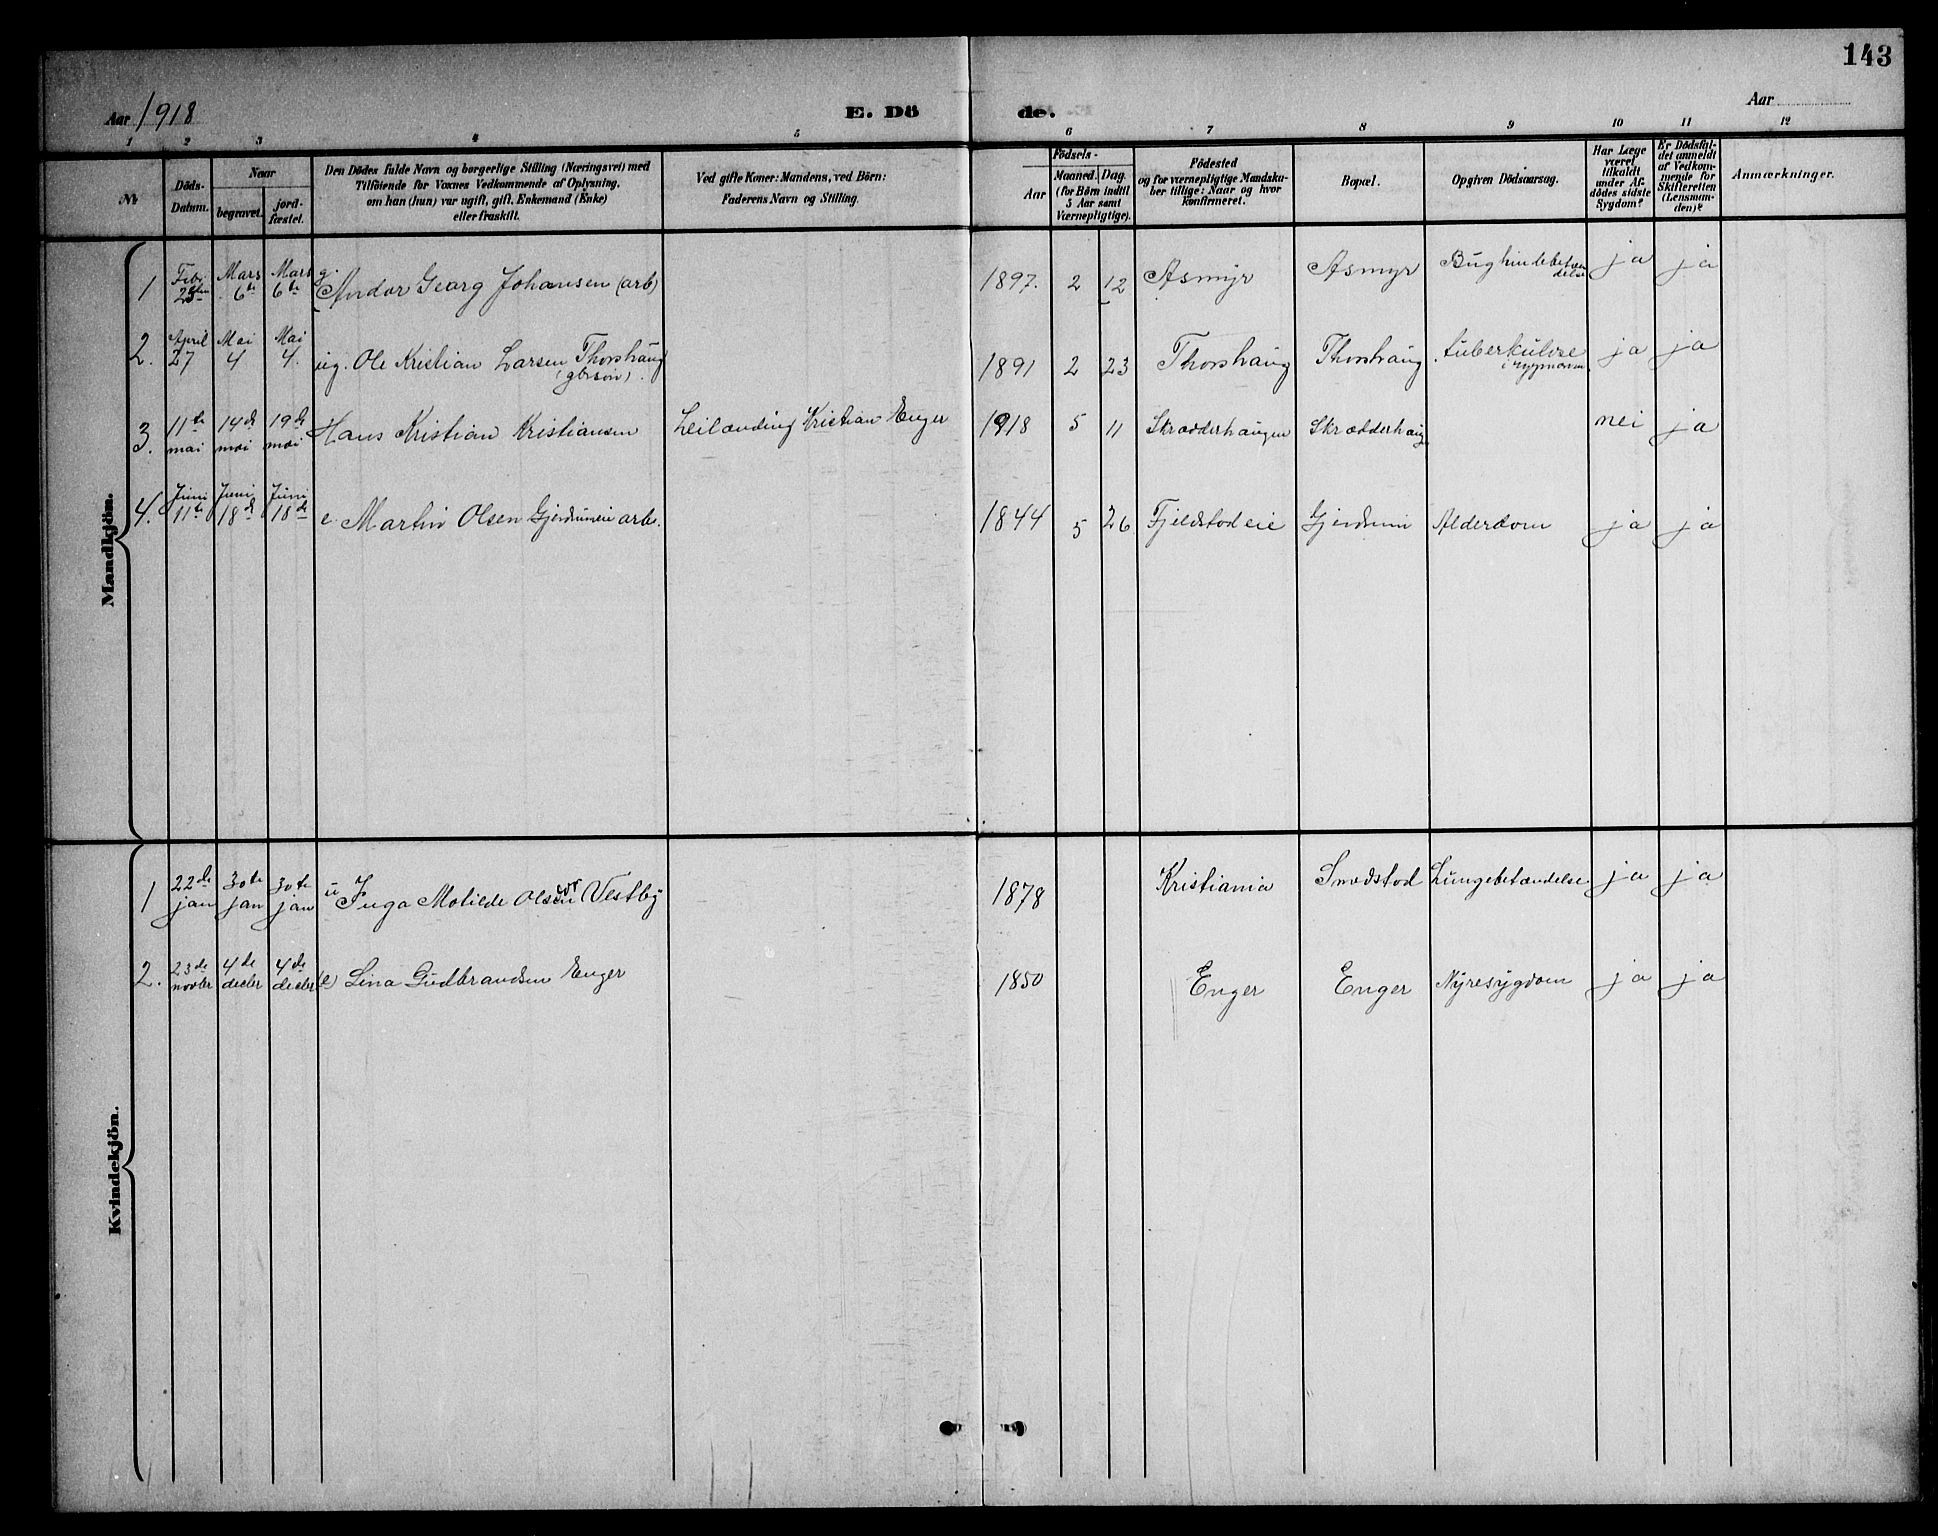 143
Aar 1918
E. Dö de.
Aar
1 2 3 4 5 6 7 8 9 10 11 12
№
Döds-
Datum.
Naar
begravet.
jord-
fæstet.
Den Dödes fulde Navn og borgerlige Stilling (Næringsvei) med
Tilföiende for Voxnes Vedkommende af Oplysning,
om han (hun) var ugift, gift, Enkemand (Enke)
eller fraskilt.
Ved gifte Koner: Mandens, ved Börn:
Faderens Navn og Stilling.
Födsels-
Aar
Maaned. Dag.
(for Börn indtil
5 Aar samt
Værnepligtige).
Födested
og for værnepligtige Mandska-
ber tillige: Naar og hvor
konfirmeret.
Bopæl.
Opgiven Dödsaarsag.
Har Læge
været
tilkaldt
under Af-
dödes sidste
Sygdom?
Er Dödsfal-
det anmeldt
af Vedkom-
mende for
Skifteretten
(Lensman-
den)?
Anmærkninger.
Mandkjön.
1 Febr 25 Mars 6te Mars 6te g. Andor Georg Johansen (arb) 1897. 2 12 Asmyr Asmyr Bughindebetæn
delse ja ja
2. April 27 Mai 4 Mai 4. ug. Ole Kristian Larsen Thorshaug 1891 2 23 Thorshaug Thorshaug tuberkulose ja ja
(gbrsøn).
3. 11te mai 14de mai 19de mai Hans Kristian Kristiansen Leilænding Kristian Enger 1918 5 11 Skrædderhaugen Skrædderhaug nei ja
4. Juni 11te Juni 18de Juni 18de e Martin Olsen Gjerdrumeie arb. 1844 5 26 Fjeldstodeie Alderdom ja ja
Kvindekjön.
1 22de jan 30te jan 30te jan u Inga Motilde Olsen Vestby 1878 Kristiania Smedstod Lungebetændelse ja ja
2. 23de novbr 4de decbr 4de decbr (e) Lina Gudbrandsen Enger 1850 Enger Enger Nyresygdom ja ja